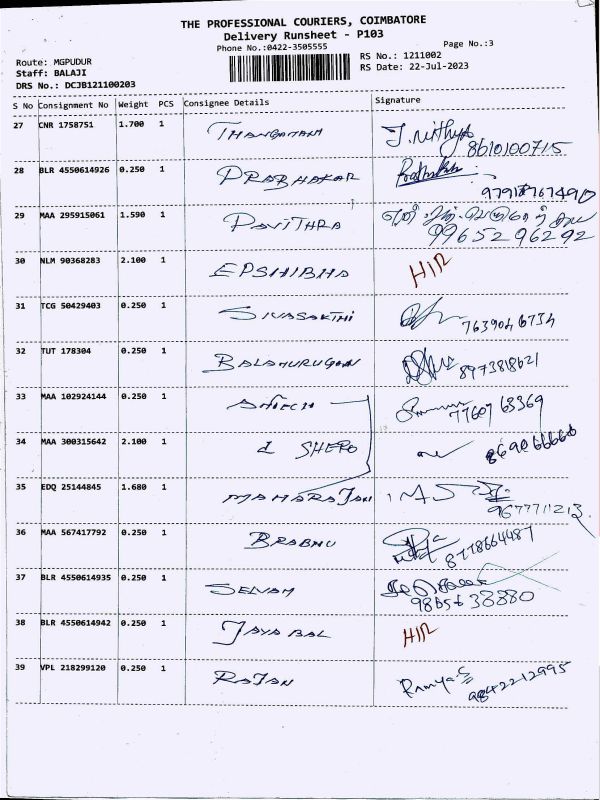 THE PROFESSIONAL COURIERS, COIMBATORE
Delivery Runsheet - P103
Phone No.:0422-3505555
Page No.:3
Route: MGPUDUR
RS No.: 1211002
Staff: BALAJI
RS Date: 22-Jul-2023
DRS No.: DCJB121100203
S No Consignment No Weight PCS Consignee Details Signature
27 CNR 1758751 1.700 1 THANGAMANI J. Nithya
8610100715
28 BLR 4550614926 0.250 1 PRABHAKAR
29 MAA 295915061 1.590 1 PAVITHRA
99652 96292
30 NLM 90368283 2.100 1 EPSHIBHA H/R
31 TCG 50429403 0.250 1 SIVASAKTHI 7639046734
32 TUT 178304 0.250 1 BALAMURUGAN 8973818621
33 MAA 102924144 0.250 1 77607 63369
34 MAA 300315642 2.100 1
35 EDQ 25144845 1.680 1 MAHARAJAN
9677711213
36 MAA 567417792 0.250 1 BRABHU 8778664487
37 BLR 4550614935 0.250 1 SELVAM
98656 38880
38 BLR 4550614942 0.250 1 JAYABAL H/R
39 VPL 218299120 0.250 1 RAJAN Ramya.S
9842212995